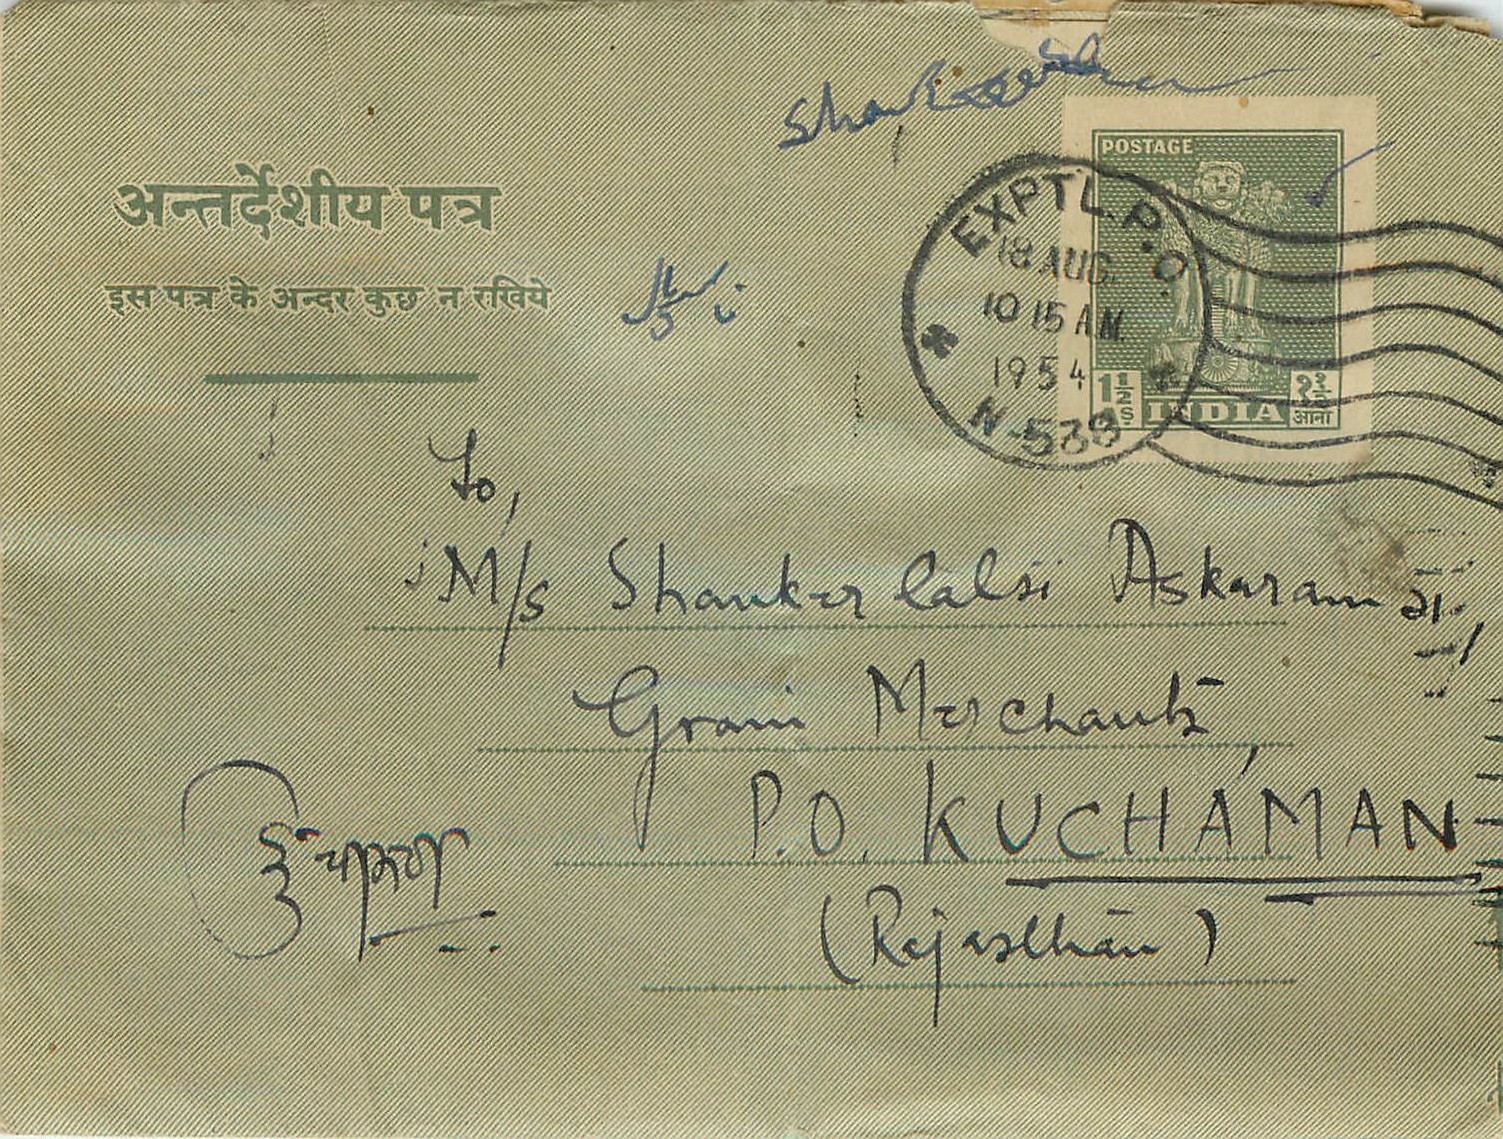 अन्तर्देशीय पत्र
इस पत्र के अन्दर कुछ न रखिये
POSTAGE
1½ As INDIA १½ आना
EXPTL. P.O.
18 AUG.
10 15 A.M.
1954
N-538
To,
M/s Shankerlalji Askaram
Grain Merchants,
P.O. KUCHAMAN
(Rajasthan)